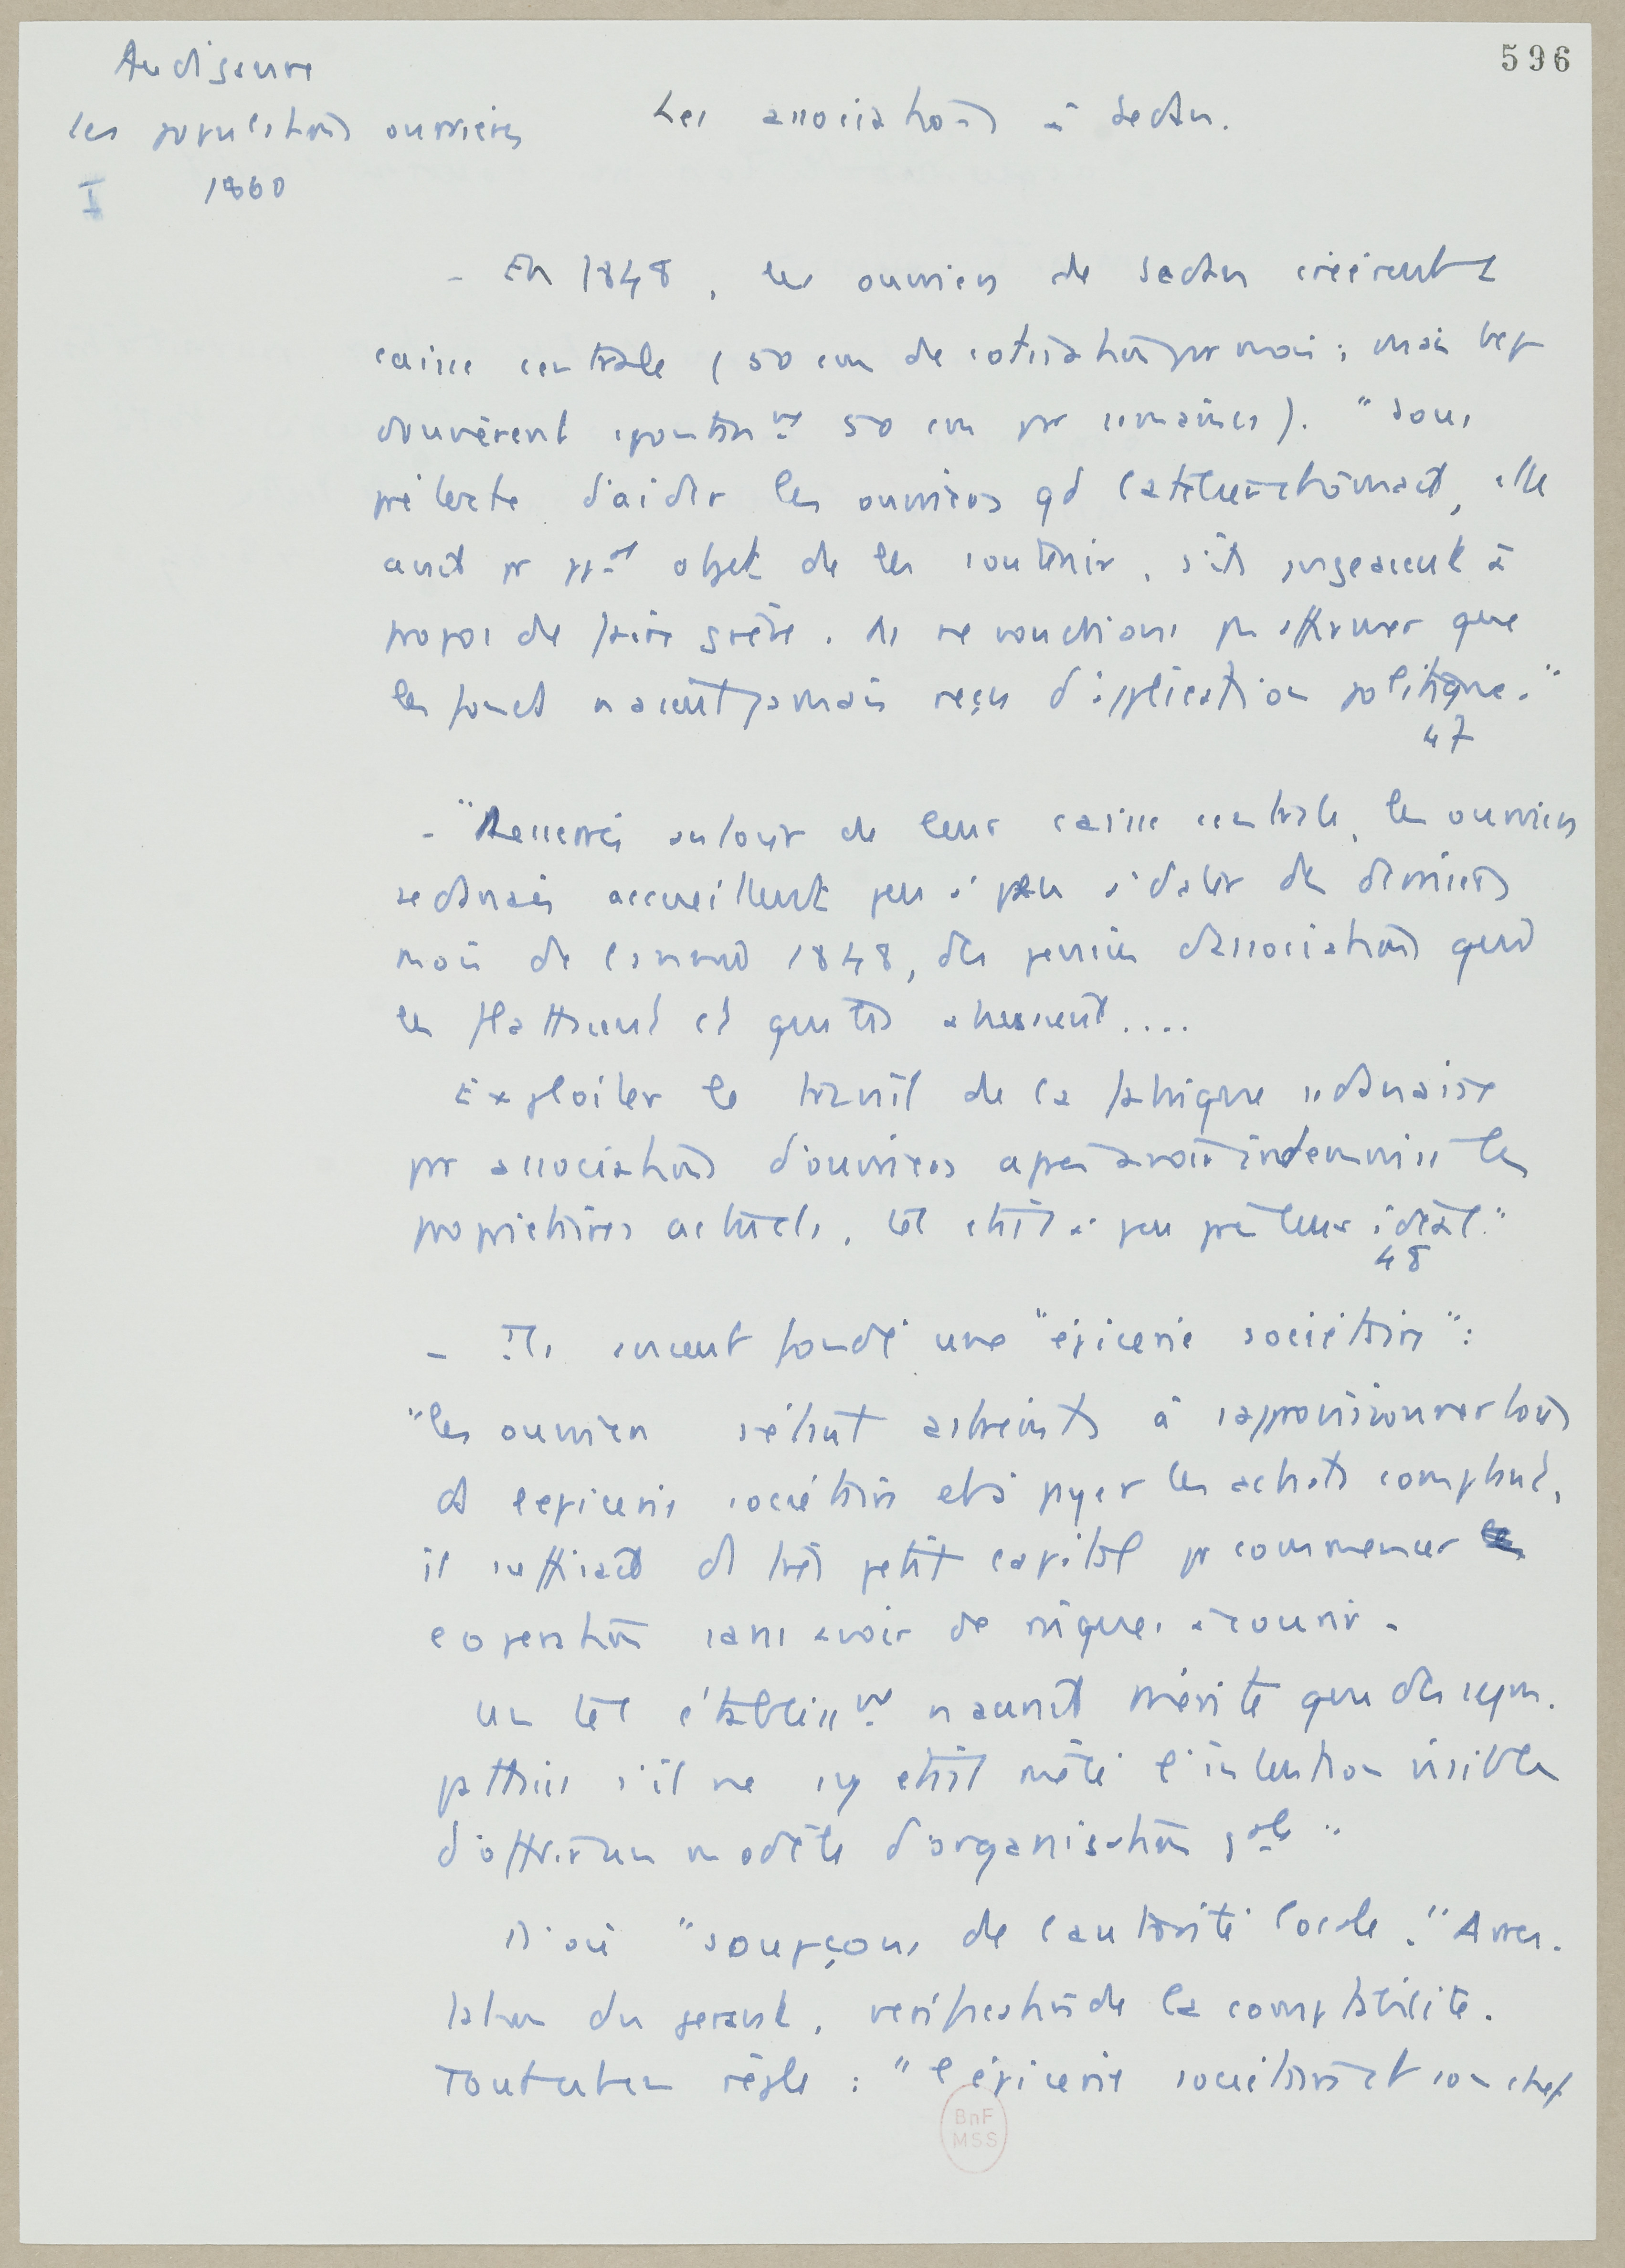 Audiganne
Les populations ouvrières
I 1860
596
Les associations à Sedan.
- En 1848, les ouvriers de Sedan créèrent 1
caisse centrale (50 cm de cotisation par mois ; mais bcp
donnèrent spontanmt 50 cm par semaines). "Sous
prétexte d'aider les ouvriers qd l'atelier chômait, elle
avait pr ppal objet de les soutenir, s'ils jugeaient à
propos de faire grève. Ns ne voudrions pas affirmer que
les fonds n'aient jamais reçu d'application politique."
47
- "Resserrés autour de leur caisse centrale, les ouvriers
sedanais accueillent peu à peu à dater des derniers
mois de l'année 1848, des pensées d'associations qui
les flattaient et qui les
Exploiter le travail de la fabrique sedanaise
par associations d'ouvriers après avoir indemnisé les
propriétaires actuels, tel était à peu près leur idéal."
48
- Ils avaient fondé une "épicerie sociétaire" :
"les ouvriers s'étant astreints à s'approvisionner tous
ds l'épicerie sociétaire et à payer les achats comptant,
il suffisait d'1 très petit capital pr commencer
l'opération sans avoir de risques à courir.
Un tel établisst n'aurait mérité que des sym-
pathies s'il ne s'y était mêlé l'intention visible
d'offrir un modèle d'organisation gale"
D'où "soupçons de l'autorité locale." Arres-
tation du gérant, vérification de la comptabilité.
Tout est en règle : "l'épicerie sociétaire et son chef
BnF
MSS